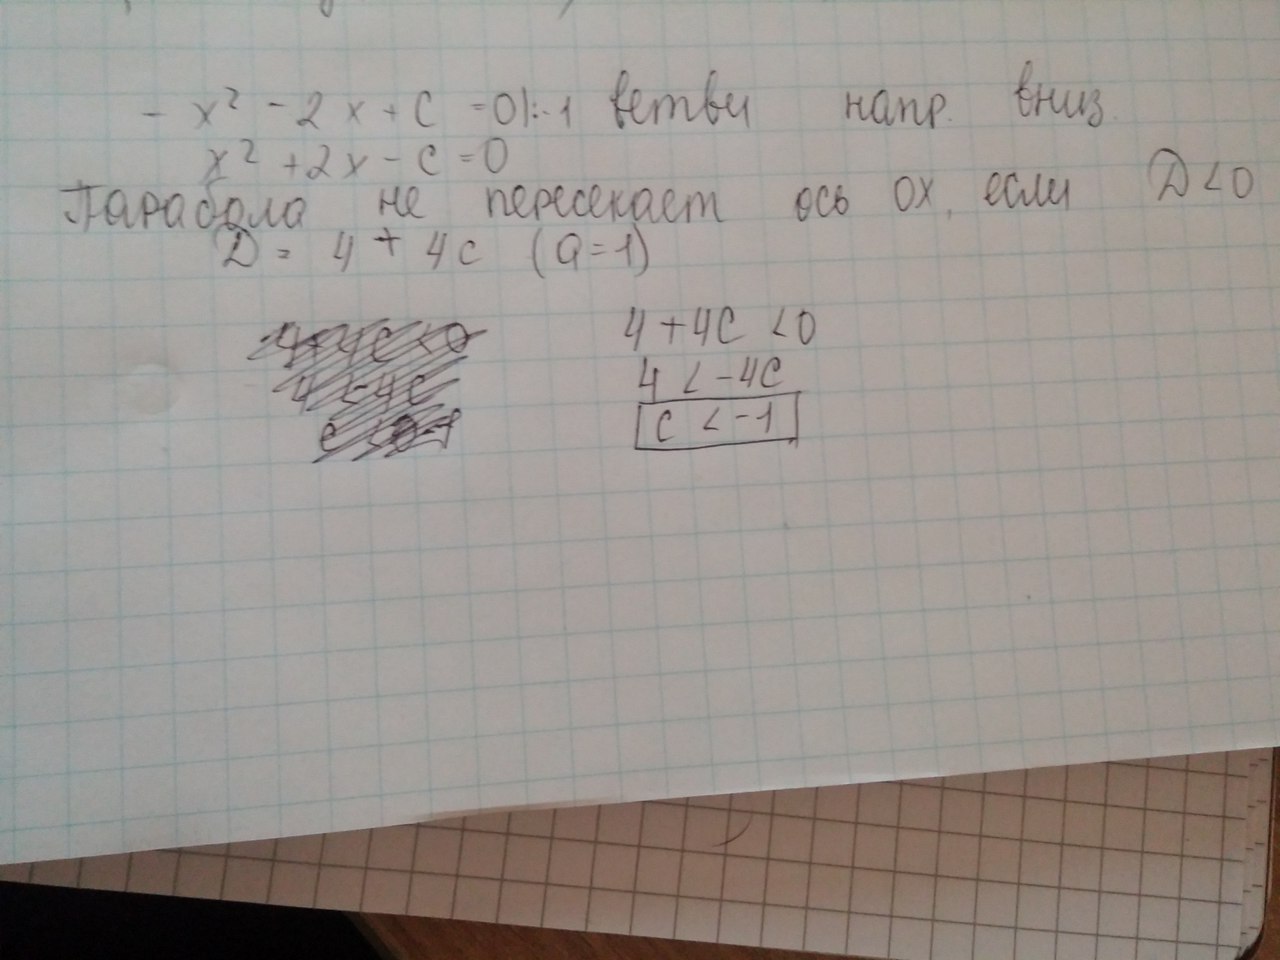 - x² - 2x + C = 0 |:-1 ветви напр. вниз.
x² + 2x - C = 0
Парабола не пересекает ось OX, если D < 0
D = 4 + 4C (a=1)
4 + 4C < 0
4 < -4C
C < -1